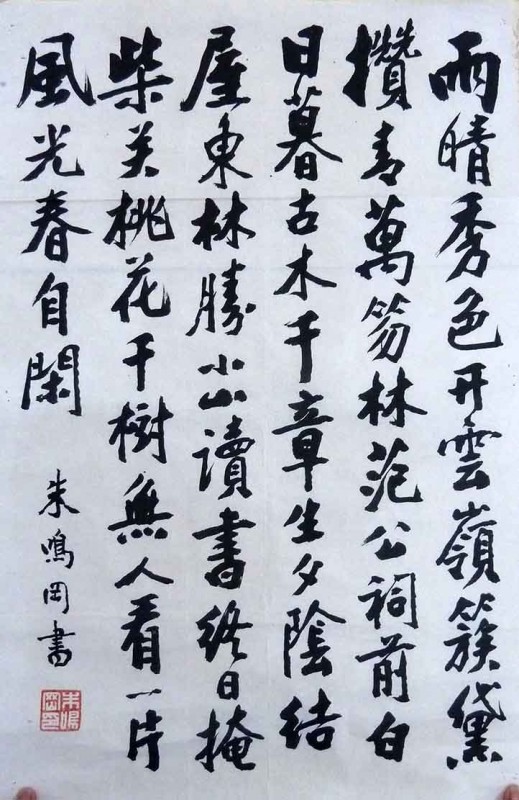 雨晴秀色开雲嶺簇黛
攢青萬笏林范公祠前白
日暮古木千章生夕陰結
屋東林勝小山讀書終日掩
柴关桃花千樹無人看一片
風光春自閑
朱鳴岡書
朱鳴岡印